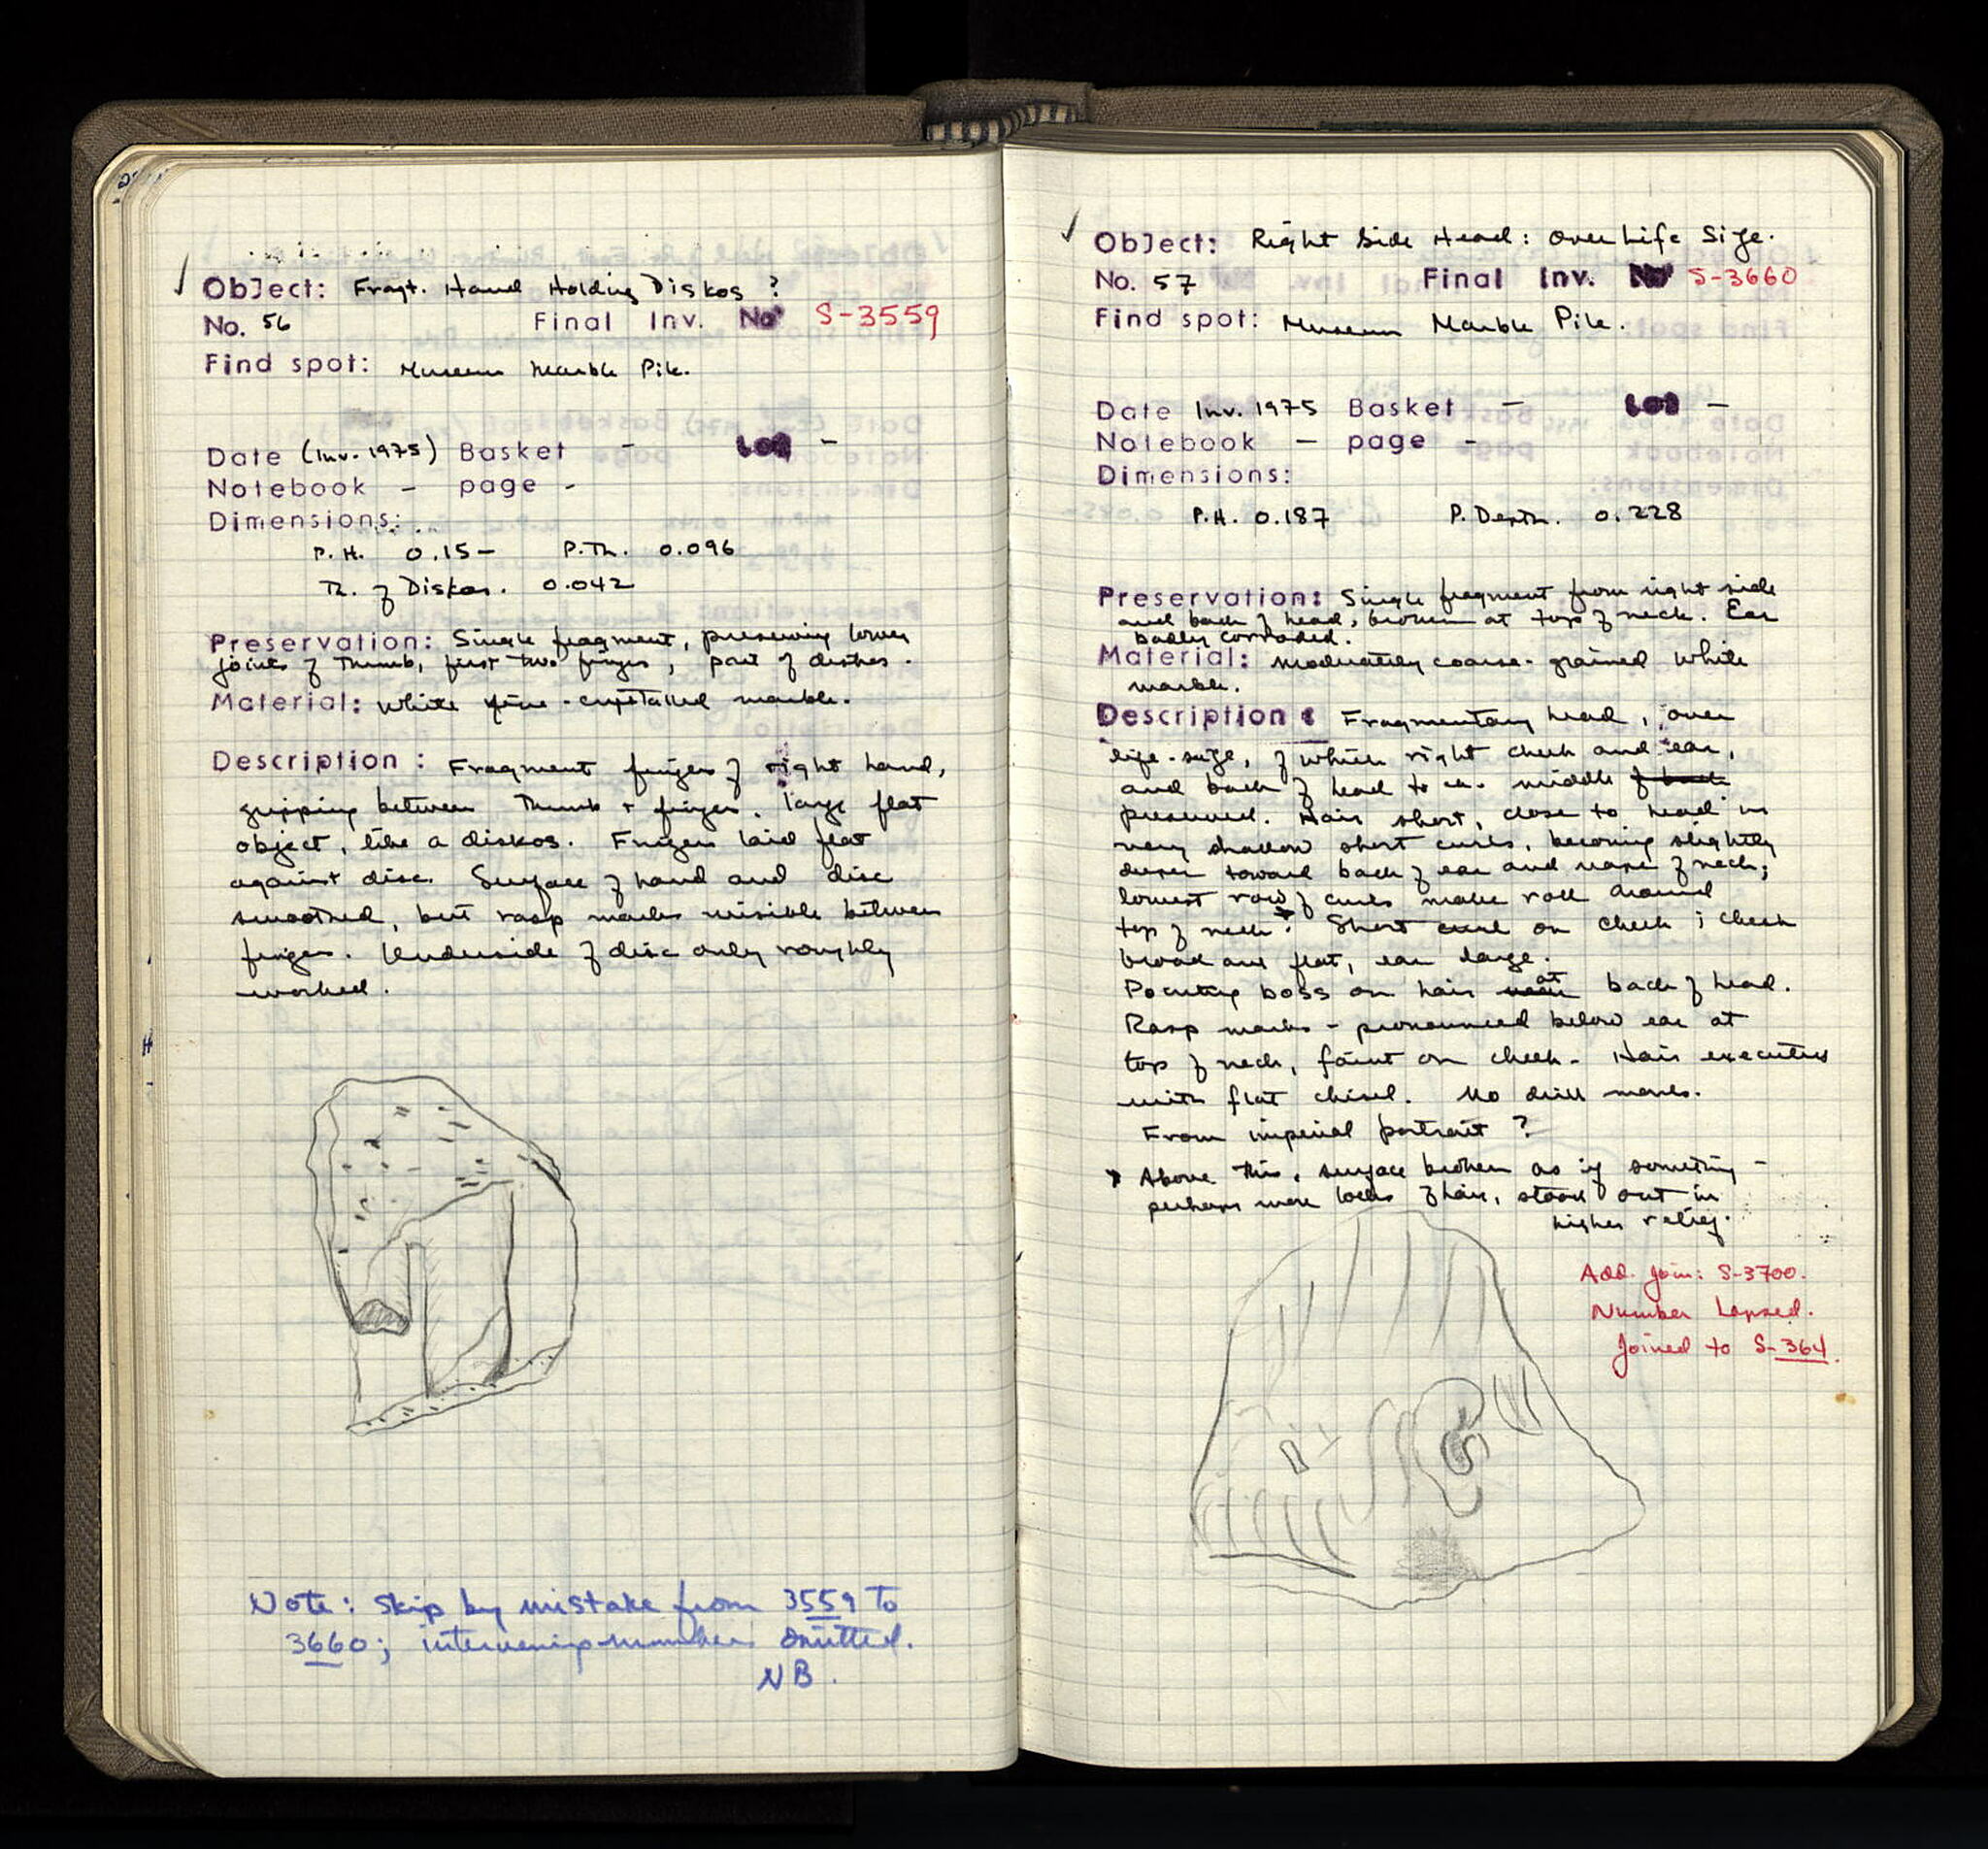 Object: Fragt. Hand Holding Diskos ?
No. 56 Final Inv. No S-3559
Find spot: Museum Marble Pile.
Date (Inv. 1975) Basket - Lot -
Notebook - page -
Dimensions:
P.H. 0.15- P.Th. 0.096
Th. of Diskos. 0.042
Preservation: Single fragment, preserving lower
joints of thumb, first two fingers, part of diskos.
Material: White fine-crystalled marble.
Description: Fragment fingers of right hand,
gripping between thumb + fingers large flat
object, like a diskos. Fingers laid flat
against disc. Surface of hand and disc
smoothed, but rasp marks visible between
fingers. Underside of disc only roughly
worked.
Note: Skip by mistake from 3559 to
3660; intervening numbers omitted.
NB.
Object: Right Side Head: Over Life Size.
No. 57 Final Inv. No S-3660
Find spot: Museum Marble Pile.
Date Inv. 1975 Basket - Lot -
Notebook - page -
Dimensions:
P.H. 0.187 P. Depth. 0.228
Preservation: Single fragment from right side
and back of head, broken at top of neck. Ear
badly corroded.
Material: Moderately coarse-grained white
marble.
Description: Fragmentary head, over
life-size, of which right cheek and ear,
and back of head to ca. middle of back
preserved. Hair short, close to head in
very shallow short curls, becoming slightly
deeper toward back of ear and nape of neck;
lowest row of curls make roll around
top of neck. Short curl on cheek; cheek
broad and flat, ear large.
Pointing boss on hair near at back of head.
Rasp marks - pronounced below ear at
top of neck, faint on cheek. Hair executed
with flat chisel. No drill marks.
From imperial portrait ?
Above this, surface broken as if something -
perhaps more locks of hair, stood out in
higher relief.
Add. join: S-3700.
Number Lapsed.
Joined to S-364.